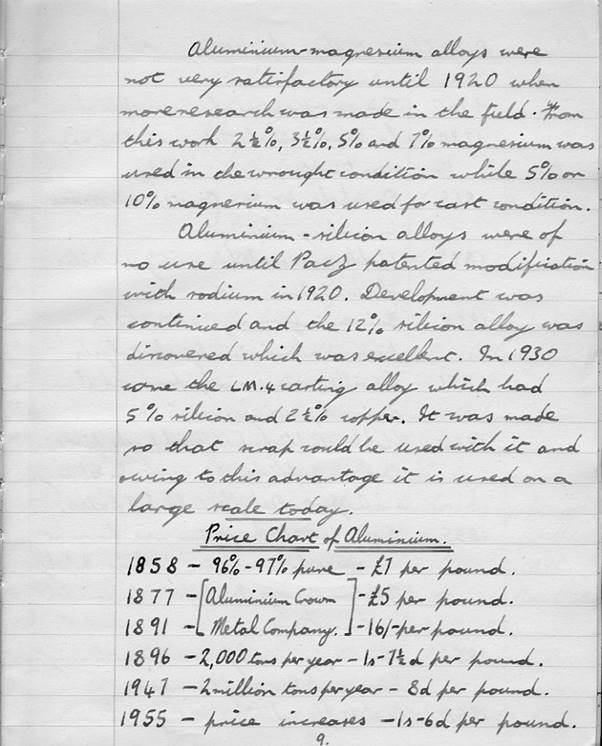 Aluminium-magnesium alloys were
not very satisfactory until 1920 when
more research was made in the field. From
this work 2½%, 3½%, 5% and 7% magnesium was
used in the wrought condition while 5% or
10% magnesium was used for cast condition.
Aluminium-silicon alloys were of
no use until Pacz patented modification
with sodium in 1920. Development was
continued and the 12% silicon alloy was
discovered which was excellent. In 1930
came the LM.4 casting alloy which had
5% silicon and 2½% copper. It was made
so that scrap could be used with it and
owing to this advantage it is used on a
large scale today.
Price Chart of Aluminium.
1858 - 96%-97% pure - £7 per pound.
1877 - [Aluminium Crown] - £5 per pound.
1891 - [Metal Company.] - 16/- per pound.
1896 - 2,000 tons per year - 1s-7½d per pound.
1947 - 2 million tons per year - 8d per pound.
1955 - price increases - 1s-6d per pound.
9.